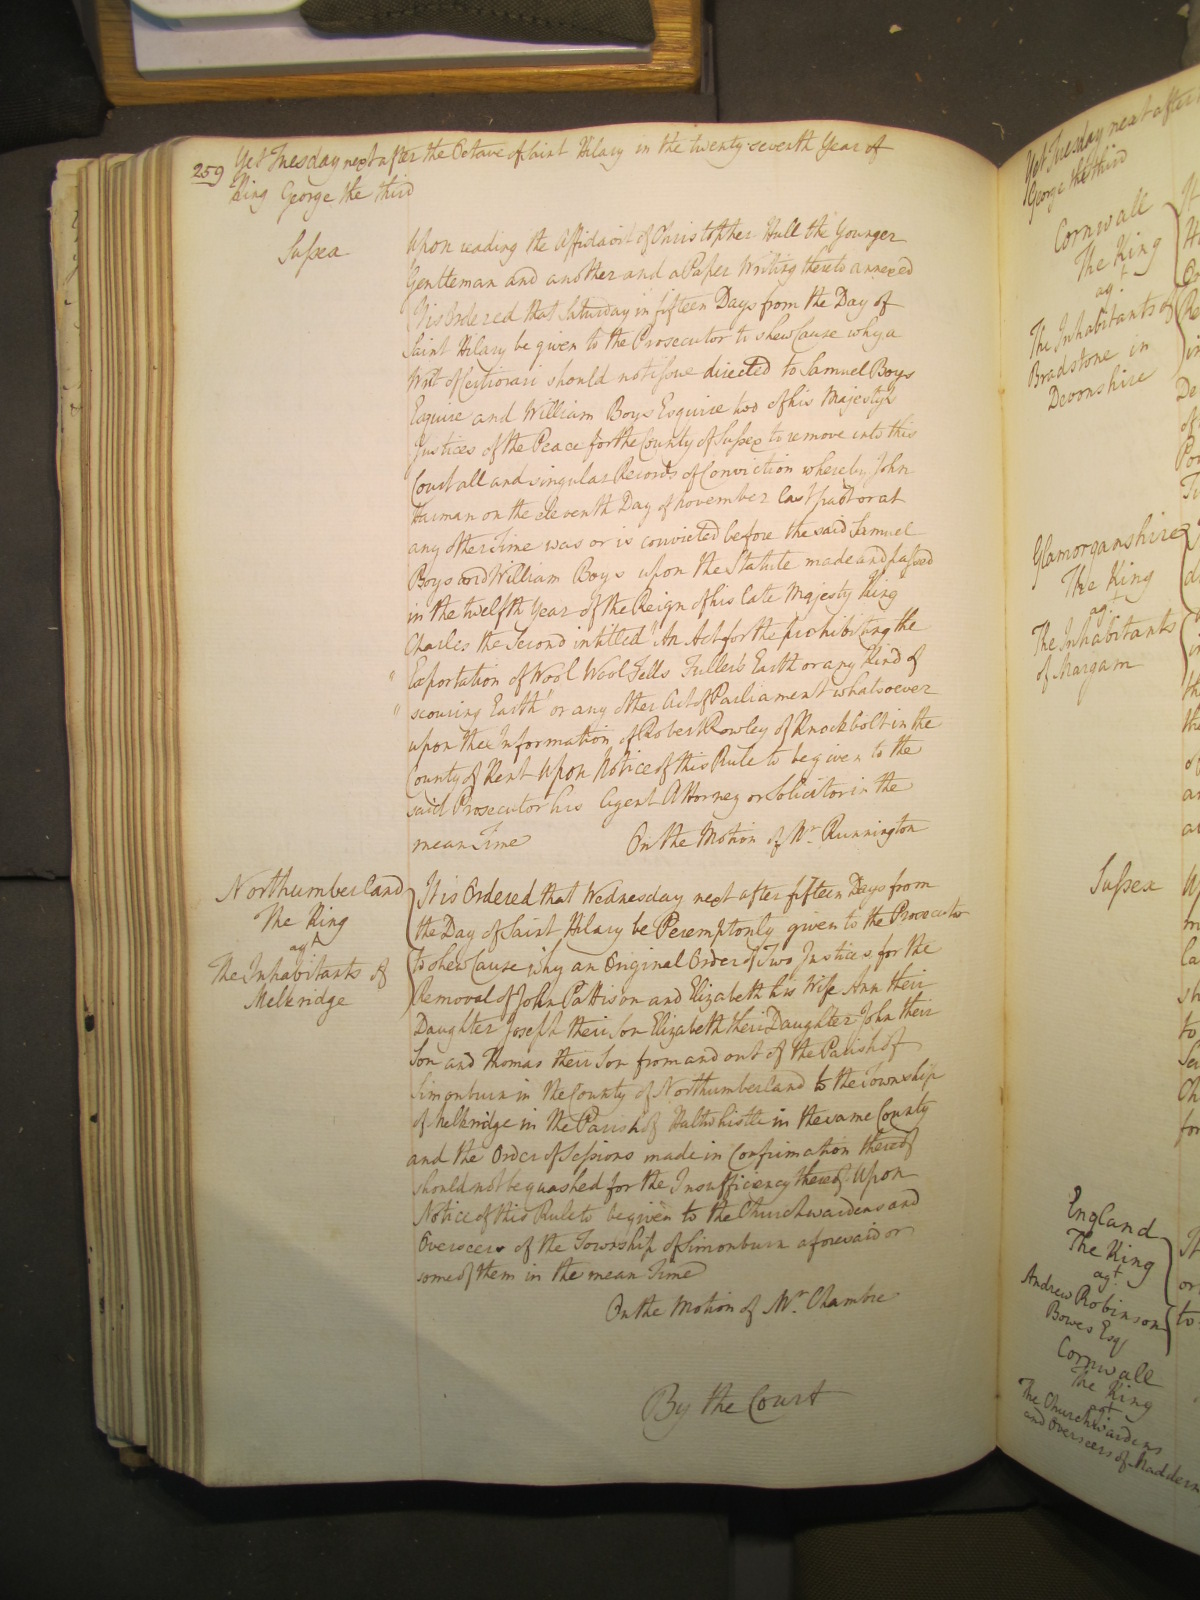 259 Yet Tuesday next after the Octave of Saint Hilary in the twenty seventh Year of
King George the third
Sussex
Upon reading the Affidavit of Christopher Hull the Younger
Gentleman and another and a Paper Writing thereto annexed
It is Ordered that Saturday in fifteen Days from the Day of
Saint Hilary be given to the Prosecutor to shew Cause why a
Writ of Certiorari should not issue directed to Samuel Boys
Esquire and William Boys Esquire two of his Majestys
Justices of the Peace for the County of Sussex to remove into this
Court all and singular Records of Conviction whereby John
Harman on the eleventh Day of november last past or at
any other Time was or is convicted before the said Samuel
Boys and William Boys upon the Statute made and passed
in the twelfth Year of the Reign of his late Majesty King
Charles the Second intitled "An Act for the prohibiting the
" Exportation of Wool Wool Fells Fullers Earth or any Kind of
" scouring Earth" or any other Act of Parliament whatsoever
upon the Information of Robert Rowley of Knockbolt in the
County of Kent Upon Notice of this Rule to be given to the
said Prosecutor his Agent Attorney or Solicitor in the
mean Time On the Motion of Mr. Runnington
Northumberland
The King
agt
The Inhabitants of
Melkridge
It is Ordered that Wednesday next after fifteen Days from
the Day of Saint Hilary be Peremptorily given to the Prosecutor
to shew Cause why an Original Order of Two Justices for the
Removal of John Pattison and Elizabeth his Wife Ann their
Daughter Joseph their Son Elizabeth their Daughter John their
Son and Thomas their Son from and out of the Parish of
Simonburn in the County of Northumberland to the Township
of Melkridge in the Parish of Halthwistle in the same County
and the Order of Sessions made in Confirmation thereof
should not be quashed for the Insufficiency thereof Upon
Notice of this Rule to be given to the Churchwardens and
Overseers of the Township of Simonburn aforesaid or
some of them in the mean Time
On the Motion of Mr. Chambre
By the Court
Yet Tuesday next after
George the third
Cornwall
The King
agt
The Inhabitants of
Bradstone in
Devonshire
Glamorganshire
The King
agt
The Inhabitants
of Margam
Sussex
England
The King
agt
Andrew Robinson
Bowes Esq
Cornwall
The King
agt
The Churchwardens
and Overseers of Maddern